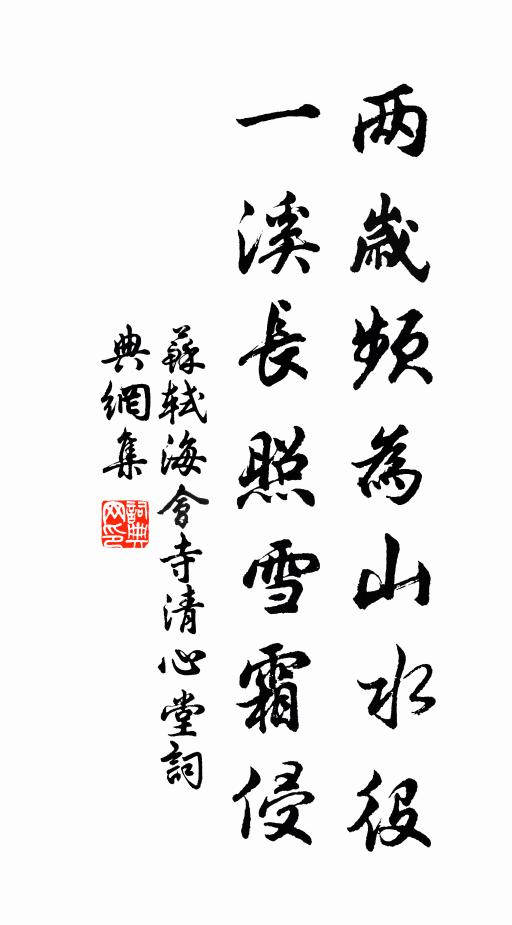 两歲頻為山水役
一溪長照雪霜侵
蘇軾海會寺清心堂詞
典網集
詞典网印